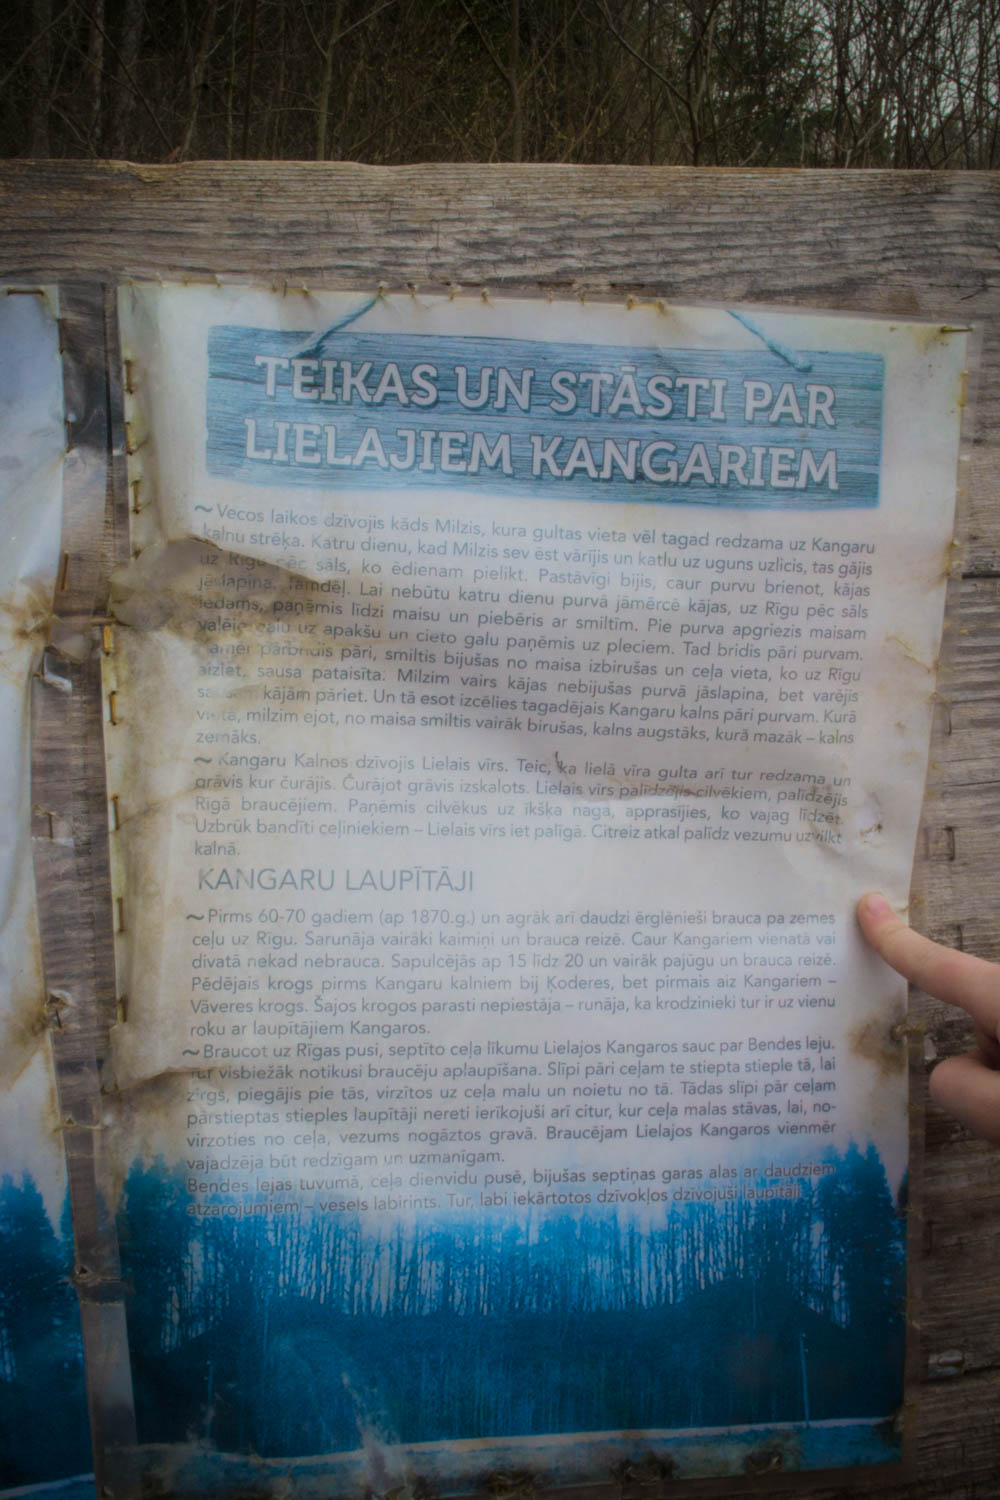 TEIKAS UN STĀSTI PAR
LIELAJIEM KANGARIEM
~Vecos laikos dzīvojis kāds Milzis, kura gultas vieta vēl tagad redzama uz Kangaru
kalnu strēķa. Katru dienu, kad Milzis sev ēst vārījis un katlu uz uguns uzlicis, tas gājis
uz Rīgu pēc sāls, ko ēdienam pielikt. Pastāvīgi bijis, caur purvu brienot, kājas
jāslapina. Tamdēļ. Lai nebūtu katru dienu purvā jāmērcē kājas, uz Rīgu pēc sāls
iedams, paņēmis līdzi maisu un piebēris ar smiltīm. Pie purva apgriezis maisam
vaļējo galu uz apakšu un cieto galu paņēmis uz pleciem. Tad bridis pāri purvam.
pārbridis pāri, smiltis bijušas no maisa izbirušas un ceļa vieta, ko uz Rīgu
aiziet, sausa pataisīta. Milzim vairs kājas nebijušas purvā jāslapina, bet varējis
sausām kājām pāriet. Un tā esot izcēlies tagadējais Kangaru kalns pāri purvam. Kurā
vietā, milzim ejot, no maisa smiltis vairāk birušas, kalns augstāks, kurā mazāk – kalns
zemāks.
~ Kangaru Kalnos dzīvojis Lielais vīrs. Teic, ka lielā vīra gulta arī tur redzama un
grāvis kur čurājis. Čurājot grāvis izskalots. Lielais vīrs palīdzējis cilvēkiem, palīdzējis
Rīgā braucējiem. Paņēmis cilvēkus uz īkšķa naga, apprasījies, ko vajag līdzēt.
Uzbrūk bandīti ceļiniekiem – Lielais vīrs iet palīgā. Citreiz atkal palīdz vezumu uzvilkt
kalnā.
KANGARU LAUPĪTĀJI
~Pirms 60-70 gadiem (ap 1870.g.) un agrāk arī daudzi ērglēnieši brauca pa zemes
ceļu uz Rīgu. Sarunāja vairāki kaimiņi un brauca reizē. Caur Kangariem vienatā vai
divatā nekad nebrauca. Sapulcējās ap 15 līdz 20 un vairāk pajūgu un brauca reizē.
Pēdējais krogs pirms Kangaru kalniem bij Ķoderes, bet pirmais aiz Kangariem –
Vāveres krogs. Šajos krogos parasti nepiestāja – runāja, ka krodzinieki tur ir uz vienu
roku ar laupītājiem Kangaros.
~Braucot uz Rīgas pusi, septīto ceļa līkumu Lielajos Kangaros sauc par Bendes leju.
Tur visbiežāk notikusi braucēju aplaupīšana. Slīpi pāri ceļam te stiepta stieple tā, lai
zirgs, piegājis pie tās, virzītos uz ceļa malu un noietu no tā. Tādas slīpi pār ceļam
pārstieptas stieples laupītāji nereti ierīkojuši arī citur, kur ceļa malas stāvas, lai, no-
virzoties no ceļa, vezums nogāztos gravā. Braucējam Lielajos Kangaros vienmēr
vajadzēja būt redzīgam un uzmanīgam.
Bendes lejas tuvumā, ceļa dienvidu pusē, bijušas septiņas garas alas ar daudziem
atzarojumiem – vesels labirints. Tur, labi iekārtotos dzīvokļos dzīvojuši laupītāji.